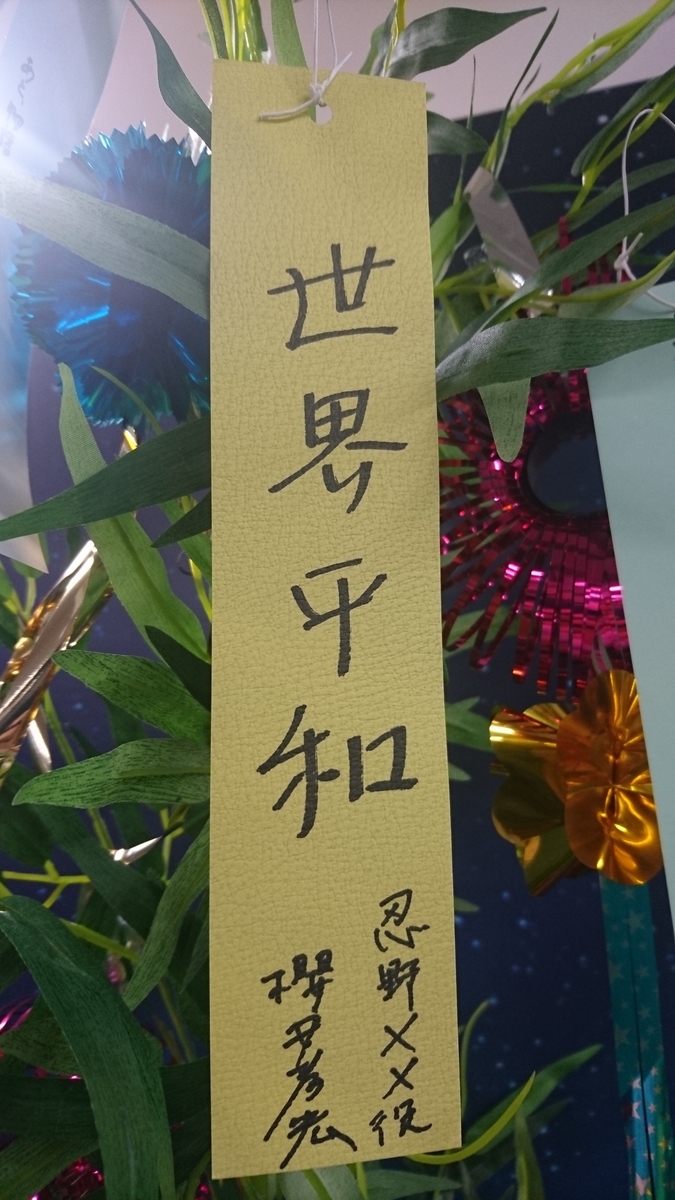 世界平和
忍野メメ役
櫻井孝宏